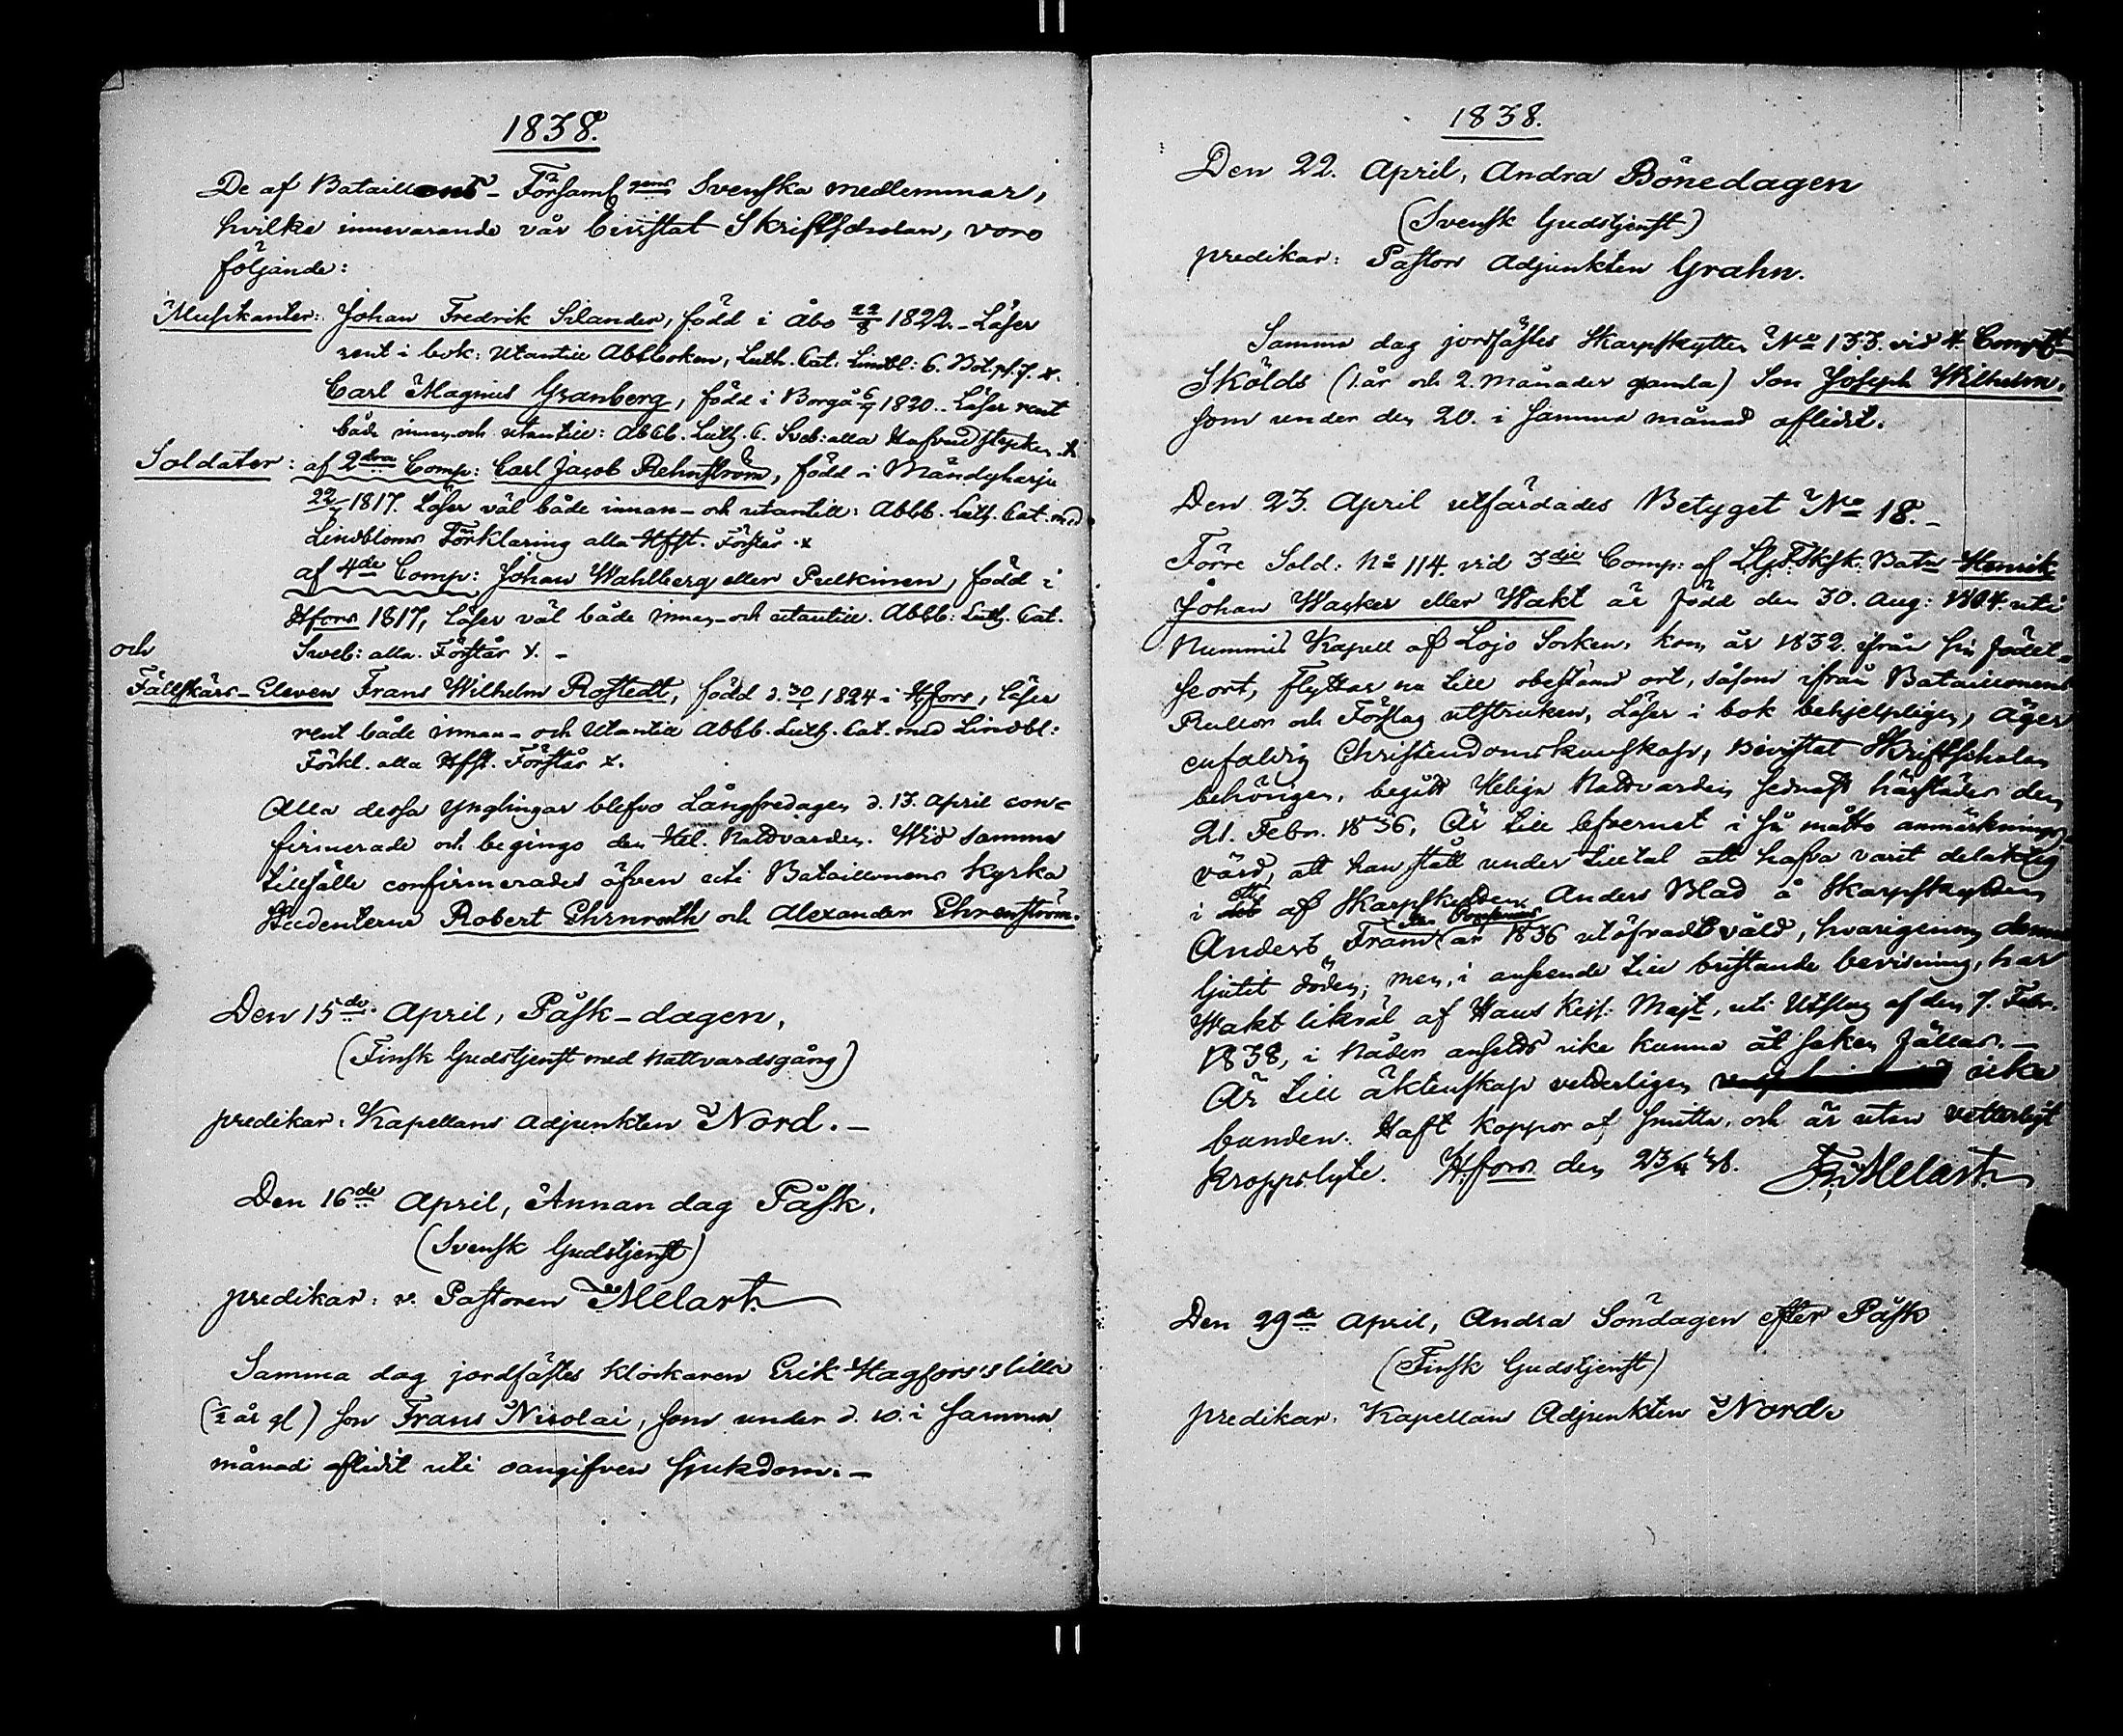 1838.
De af Bataillons-Församlgens Svenska medlemmar,
hvilka innevarande vår bevistat Skriftscholan, voro
följande:
Musikanter: Johan Fredrik Silander, född i Åbo 22/8 1822. Läser
rent i bok: utantill Abbboken, Luth. Cat. Lindbl: 6. Bot.ps. 7. x.
Carl Magnus Granberg, född i Borgå 1820. Läser rent
både innan och utantill: Abcb. Luth. C. Sveb: alla Hufvudstycken x
Soldater: af 2dra Comp: Carl Jacob Rehnström, född i Mändyharju
1817. Läser väl både innan- och utantill: Abcb. Luth. Cat. med
Lindbloms Förklaring alla Hfst. Förstår x
af 4de Comp: Johan Wahlberg eller Pulkinen, född i
Hfors 1817, Läser väl både innan- och utantill. Abcb: Luth. Cat.
och Sveb: alla. Förstår x. -
Fällskärs-Eleven Frans Wilhelm Rostedt, född d. 30 1824 i Hfors, läser
rent både innan- och utantill Abcb. Luth. Cat. med Lindbl:
Förkl. alla Hfst. Förstår x.
Alla dessa ynglingar blefvo Långfredagen d. 13. April con-
firmerade och begingo den Hel. Nattvarden. Wid samma
tillfälle confirmerades äfven uti Bataillonens Kyrka
Studenterne Robert Ehrnrooth och Alexander Ehrenström.
Den 15de April, Påsk-dagen,
(Finsk Gudstjenst med Nattvardsgång)
predikar: Kapellans Adjunkten Nord. -
Den 16de April, Annan dag Påsk.
(Svensk Gudstjenst)
predikar: v. Pastoren Melart.
Samma dag jordfästes Klockaren Erik Hagfors's lilla
(½ år gl) son Frans Nicolai, som under d. 10. i samma
månad aflidit uti oangifven sjukdom. -
1838.
Den 22. April, Andra Bönedagen
(Svensk Gudstjenst)
predikar: Pastors Adjunkten Grahn.
Samma dag jordfästes Skarpskytten No 133. vid 4. Comps
Skölds (1. år och 2. månader gamla) Son Joseph Wilhelm,
som under den 20. i samma månad aflidit.
Den 23. April utfärdades Betyget No 18. -
Förre Sold: No 114. vid 3dje Comp: af Batn Henrik
Johan Wacker eller Wakt är född den 30. Aug: 1804 uti
Nummis Kapell af Lojo Socken, kom år 1832. ifrån sin födel-
seort, flyttar nu till obestämd ort, såsom ifrån Bataillonens
Rullor och Förslag utstruken, Läser i bok behjelpligen, äger
enfaldig Christendomskunskap, Bevistat Skriftscholan
behörigen, begått Heliga Nattvarden sednast härstädes den
21. Febr. 1836. Är till lefvernet i så måtto anmärknings-
värd, att han stått under tilltal att hafva varit delaktig
i af Skarpskytten Anders Blad å Skarpskytten
Anders Fram år 1836 utöfvadt våld, hvarigenom denne
ljutit döden; men, i anseende till bristande bevisning, har
Wakt likväl af Hans Kejs: Majt, uti Utslag af den 7. Febr.
1838, i Nåder ansetts icke kunna åt saken fällas. -
Är till äktenskap veterligen icke
bunden. Haft koppor af smitta, och är utan vetterligt
kroppslyte. Hfors den 23/4 38. Melart.
Den 29de April, Andra Söndagen efter Påsk
(Finsk Gudstjenst)
predikar. Kapellans Adjunkten Nord.